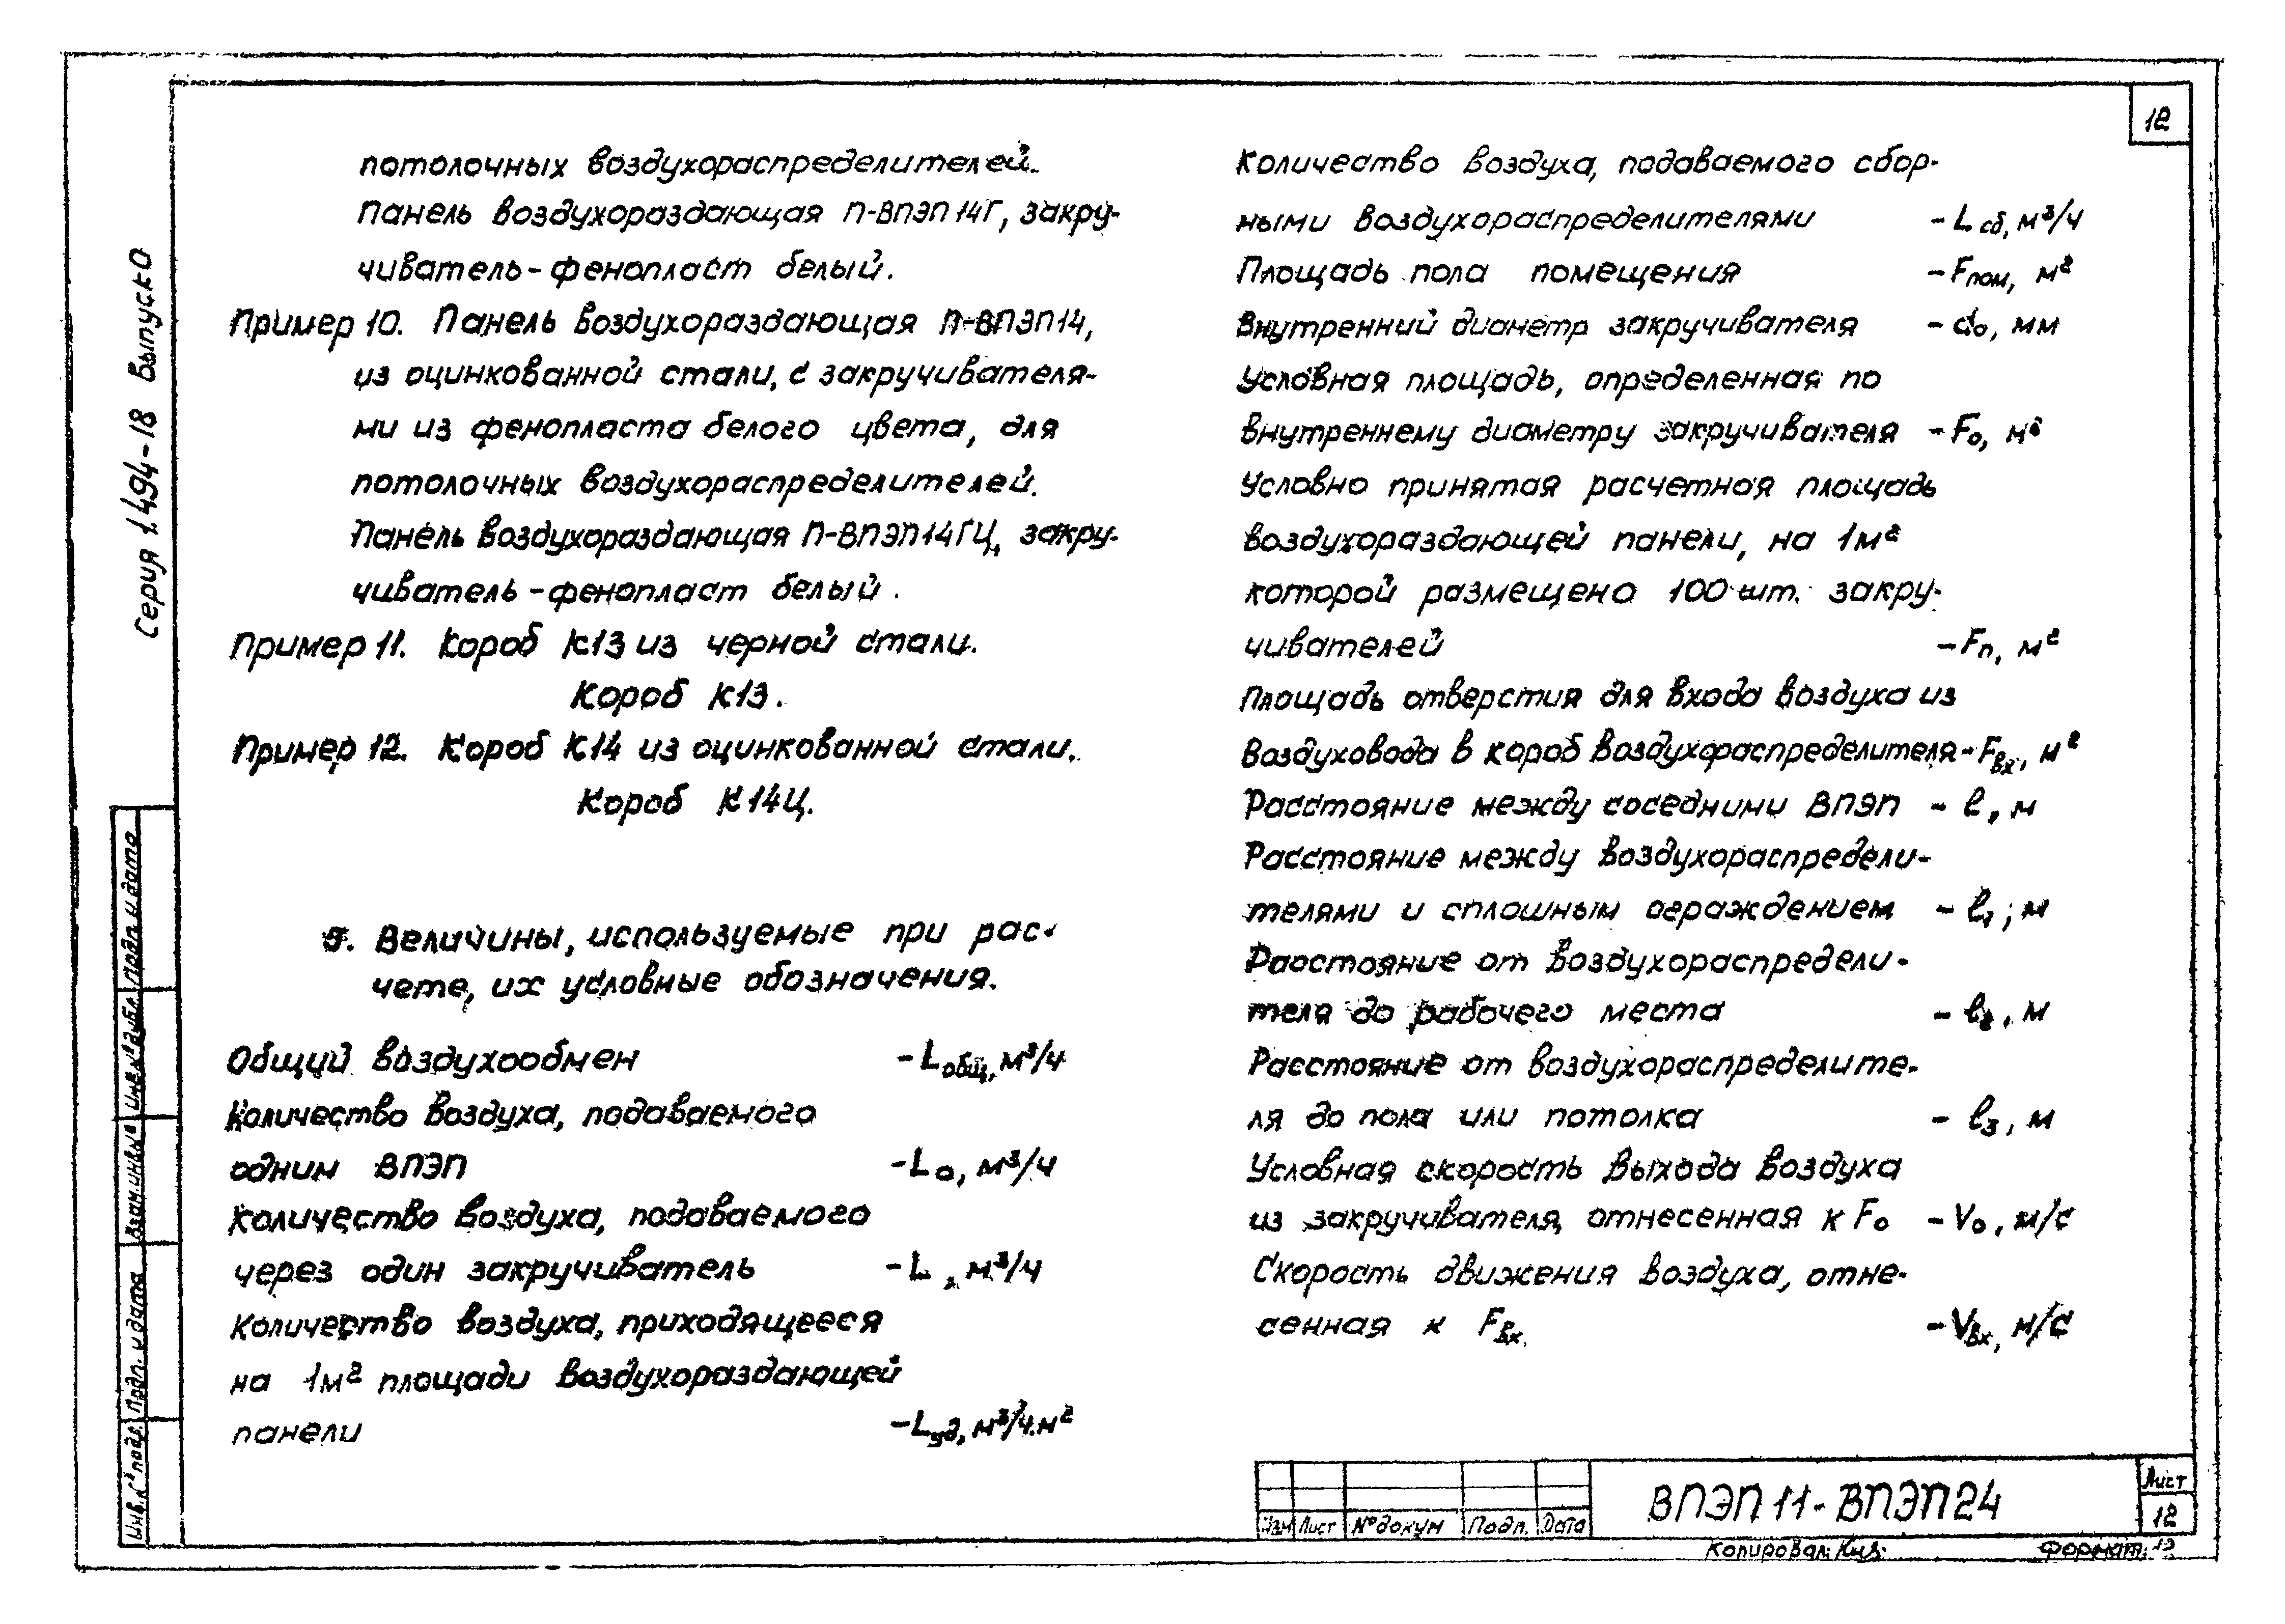 12
потолочных воздухораспределителей.
Панель воздухораздающая П-ВПЭП14Г, закру-
чиватель-фенопласт белый.
Пример 10. Панель воздухораздающая П-ВПЭП14,
из оцинкованной стали, с закручивателя-
ми из фенопласта белого цвета, для
потолочных воздухораспределителей.
Панель воздухораздающая П-ВПЭП14ГЦ, закру-
чиватель-фенопласт белый.
Пример 11. Короб К13 из черной стали.
Короб К13.
Пример 12. Короб К14 из оцинкованной стали.
Короб К14Ц.
5. Величины, используемые при рас-
чете, их условные обозначения.
Общий воздухообмен - Lобщ, м³/ч
Количество воздуха, подаваемого
одним ВПЭП - Lо, м³/ч
Количество воздуха, подаваемого
через один закручиватель - L, м³/ч
Количество воздуха, приходящееся
на 1м² площади воздухораздающей
панели - Lуд, м³/ч.м²
Количество воздуха, подаваемого сбор-
ными воздухораспределителями - Lсб, м³/ч
Площадь пола помещения - Fпом, м²
Внутренний диаметр закручивателя - dо, мм
Условная площадь, определенная по
внутреннему диаметру закручивателя - Fо, м²
Условно принятая расчетная площадь
воздухораздающей панели, на 1м²
которой размещено 100 шт. закру-
чивателей - Fп, м²
Площадь отверстия для входа воздуха из
воздуховода в короб воздухораспределителя - Fвх, м²
Расстояние между соседними ВПЭП - l, м
Расстояние между воздухораспредели-
телями и сплошным ограждением - l₁; м
Расстояние от воздухораспредели-
теля до рабочего места - l₂, м
Расстояние от воздухораспределите-
ля до пола или потолка - l₃, м
Условная скорость выхода воздуха
из закручивателя, отнесенная к Fо - Vо, м/с
Скорость движения воздуха, отне-
сенная к Fвх. - Vвх, м/с
Серия 1.494-18 Выпуск 0
Подп. и дата
Инв.№ дубл.
Взам.инв.№
Подп. и дата
Инв.№ подл.
Изм Лист №докум Подп. Дата
ВПЭП11-ВПЭП24
Лист
12
Копировал:
Формат: 12